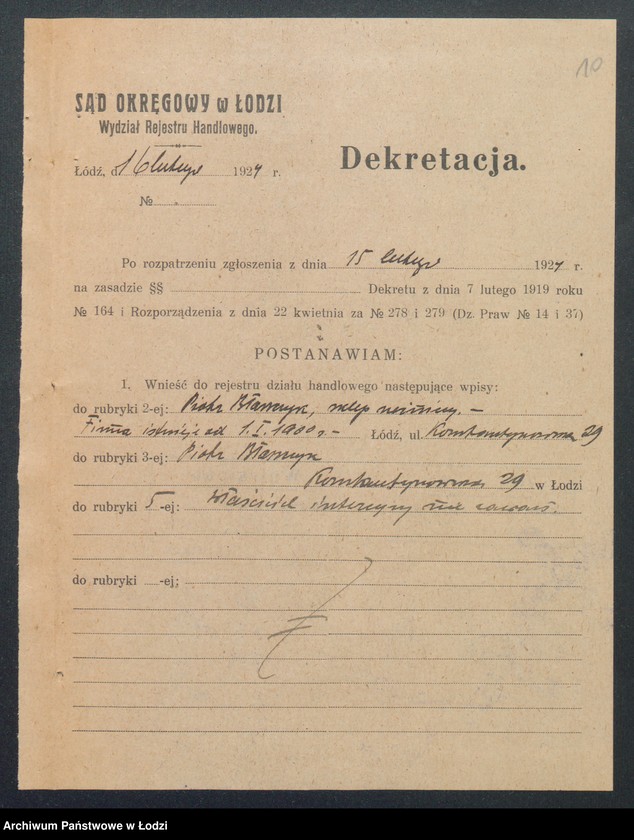 10
SĄD OKRĘGOWY w ŁODZI
Wydział Rejestru Handlowego.
Dekretacja.
Łódź, d 16 lutego 1924 r.
№
Po rozpatrzeniu zgłoszenia z dnia 15 lutego 1924 r.
na zasadzie §§ Dekretu z dnia 7 lutego 1919 roku
№ 164 i Rozporządzenia z dnia 22 kwietnia za № 278 i 279 (Dz. Praw № 14 i 37)
POSTANAWIAM:
I. Wnieść do rejestru działu handlowego następujące wpisy:
do rubryki 2-ej: Piotr sklep
Firma istnieje od 1.I.1900 r. – Łódź, ul. Konstantynowska 29
do rubryki 3-ej: Piotr
Konstantynowska 29 w Łodzi
do rubryki 5-ej: właściciel intercyzy nie zawarł.
do rubryki -ej:
Archiwum Państwowe w Łodzi